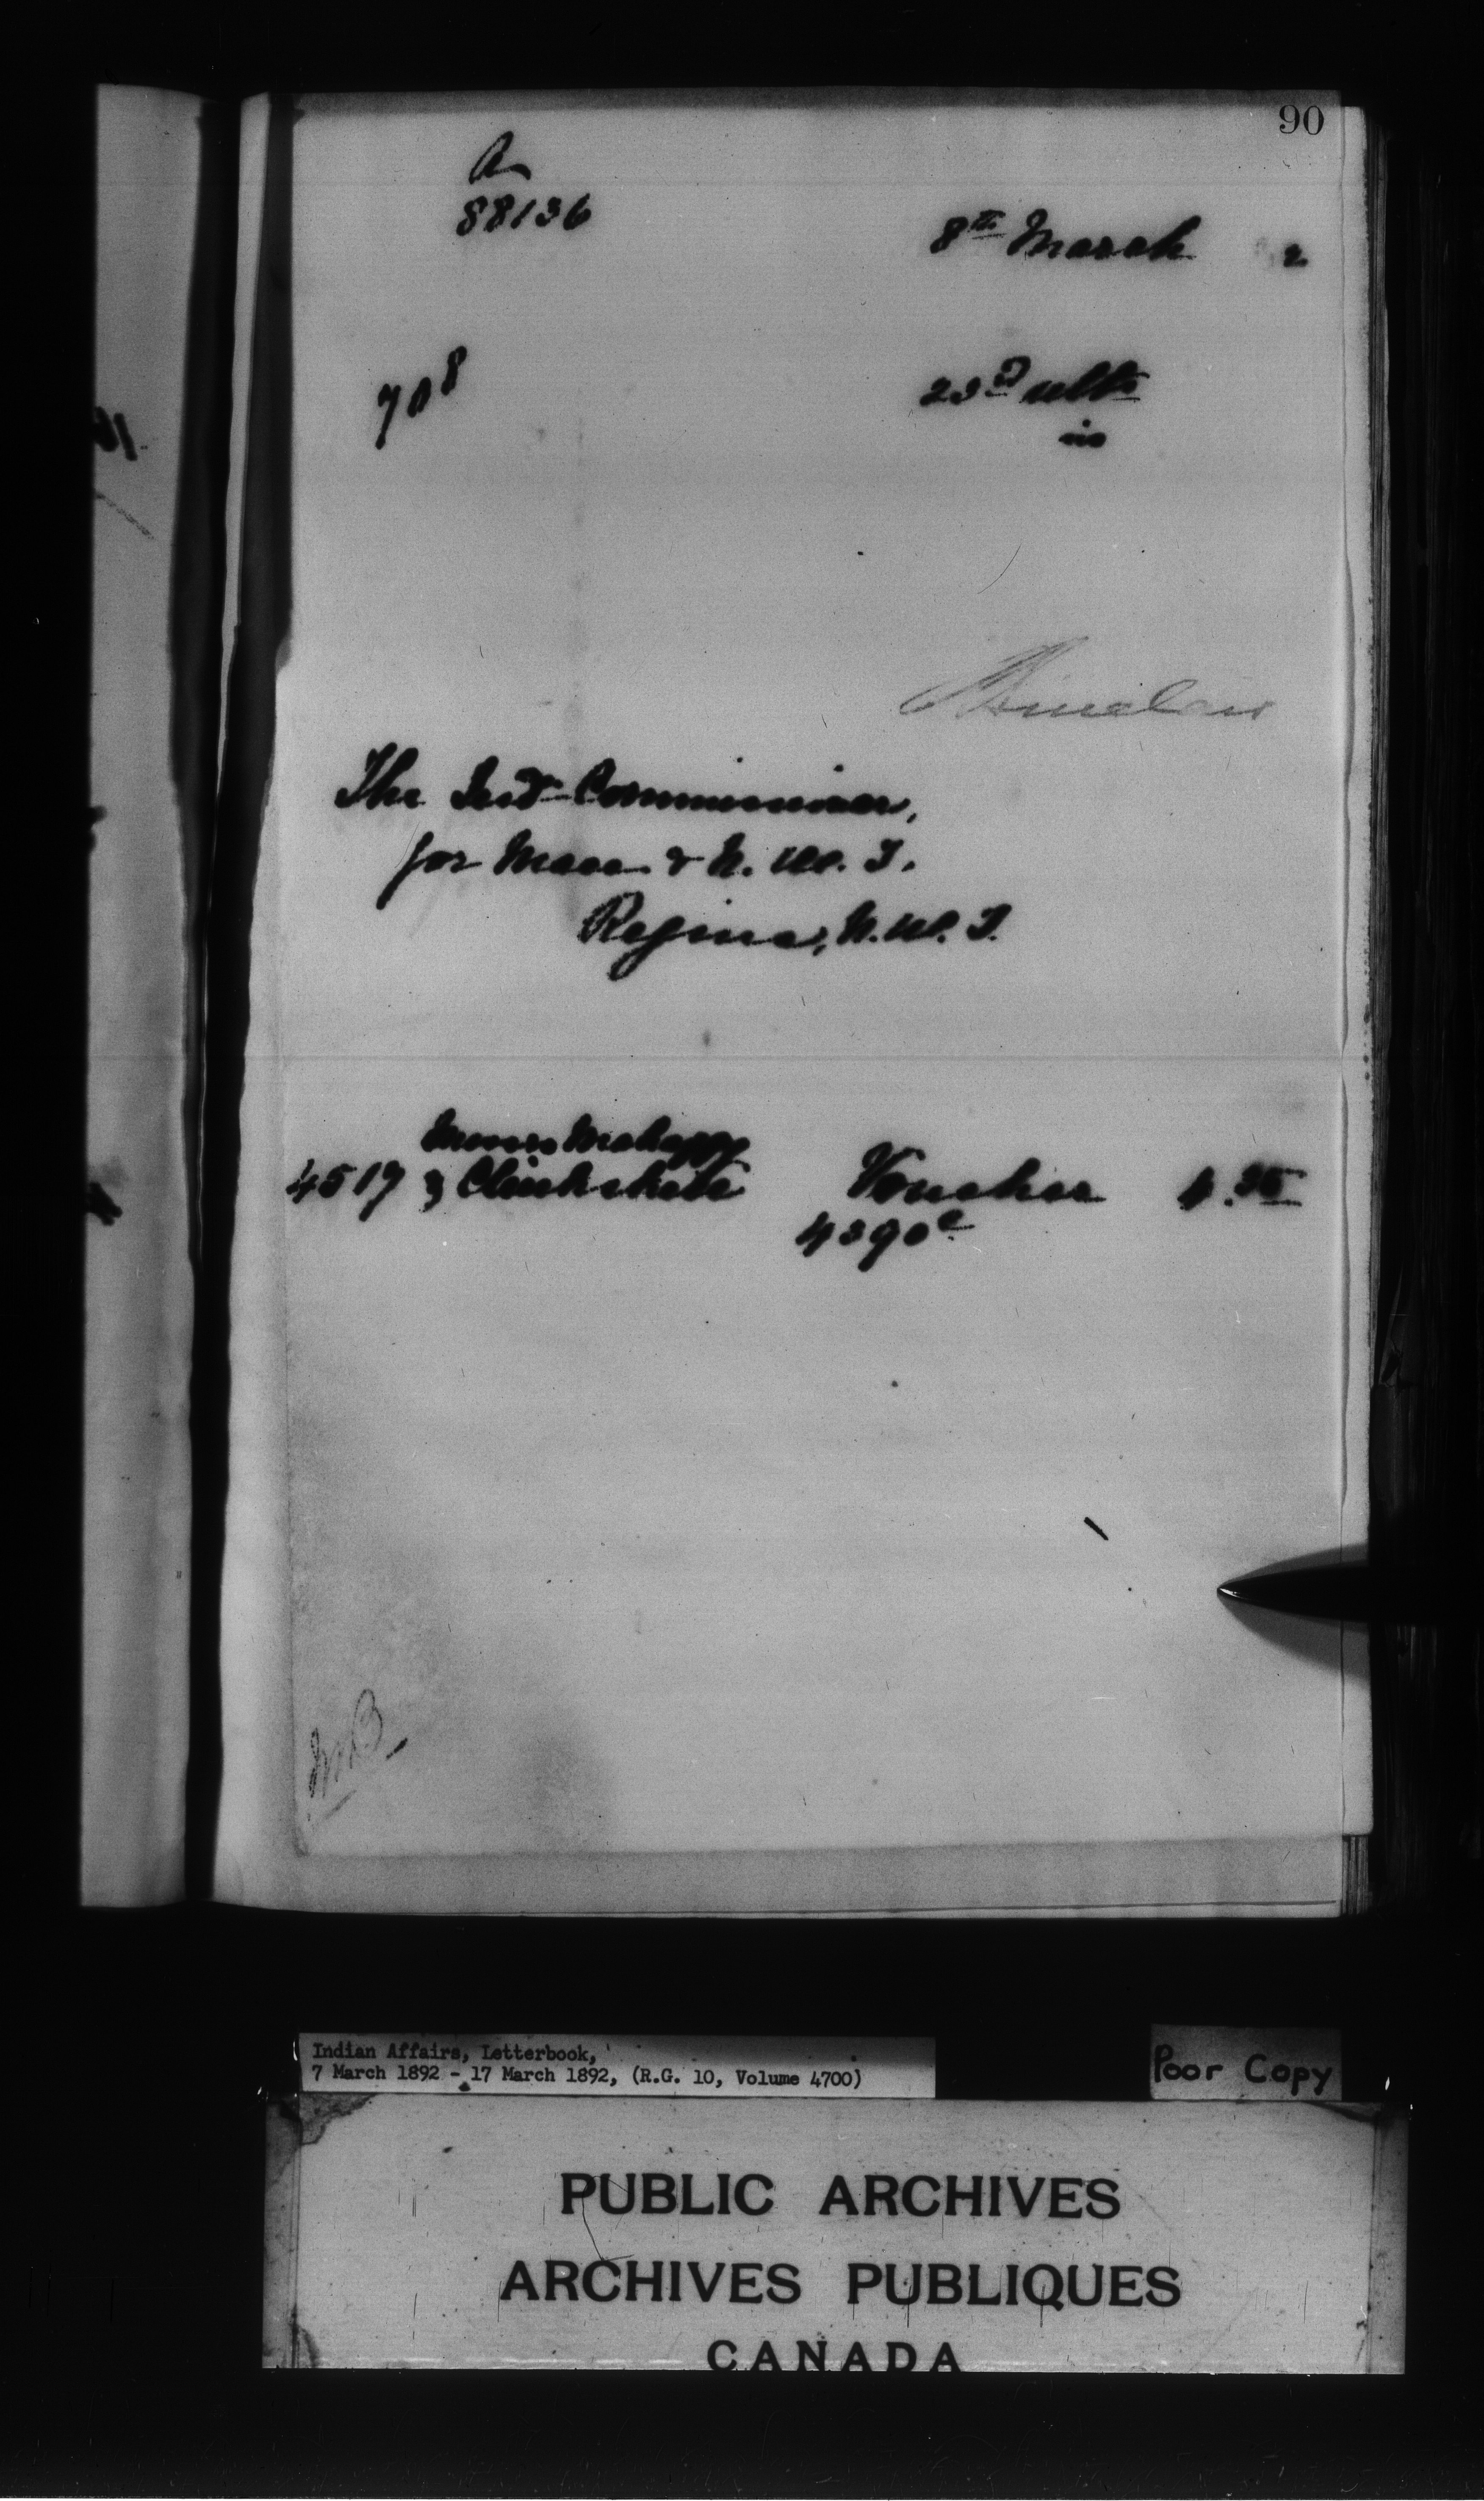 90
A
88136
8th March 2
708
23d ulto
is
Sinclair
The Ind Commissioner,
for Man. & N. W. T.
Regina, N. W. T.
Messrs
4517 & Clinkskill Voucher 4.35
4390c
Indian Affairs, Letterbook,
7 March 1892 - 17 March 1892, (R.G. 10, Volume 4700)
Poor Copy
PUBLIC ARCHIVES
ARCHIVES PUBLIQUES
CANADA